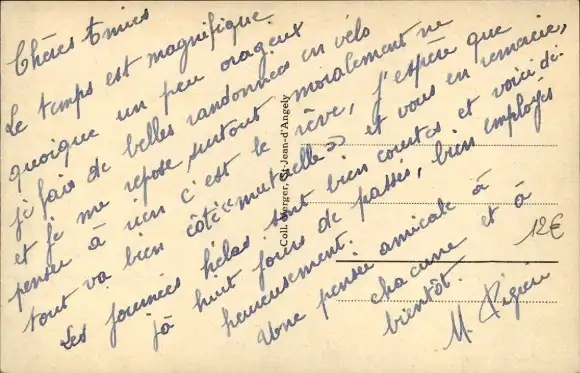 Chères Amies
Le temps est magnifique.
quoique un peu orageux
je fais de belles randonnées en vélo
et je me repose surtout moralement ne
penser à rien c'est le rêve, j'espère que
tout va bien côté "mutuelle" et vous en remercie,
Les journées hélas sont bien courtes et voici dé-
jà huit jours de passés, bien employés
heureusement.
Une pensée amicale à
chacune et à
bientôt.
M.
Coll. Berger, St-Jean-d'Angely
12€